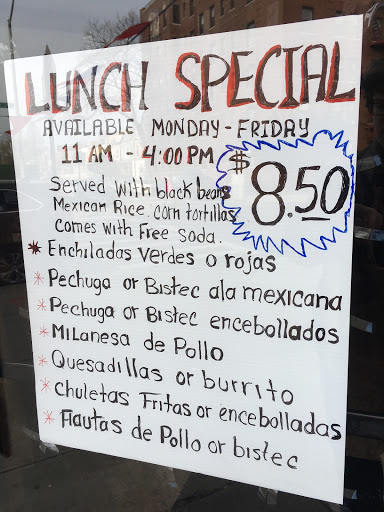 LUNCH SPECIAL
AVAILABLE MONDAY - FRIDAY
11 AM - 4:00 PM
$8.50
Served with black beans
Mexican Rice. corn tortillas
comes with Free soda.
* Enchiladas Verdes o rojas
* Pechuga or Bistec ala mexicana
* Pechuga or Bistec encebollados
* Milanesa de Pollo
* Quesadillas or burrito
* Chuletas Fritas or encebolladas
* Flautas de Pollo or bistec